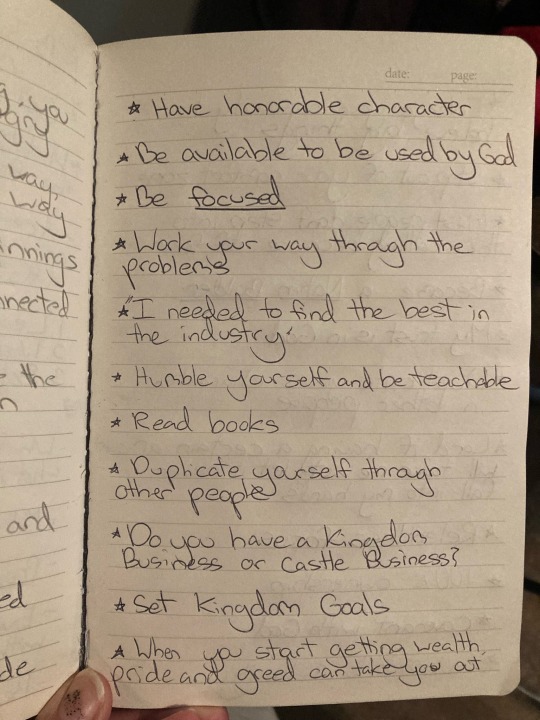 g, you
angry
way,
way
innings
nnected
e the
n
and
ed
de
date: page:
☆ Have honorable character
☆ Be available to be used by God
☆ Be focused
☆ Work your way through the
problems
☆ "I needed to find the best in
the industry"
☆ Humble yourself and be teachable
☆ Read books
☆ Duplicate yourself through
other people
☆ Do you have a Kingdom
Business or Castle Business?
☆ Set Kingdom Goals
☆ When you start getting wealth,
pride and greed can take you out